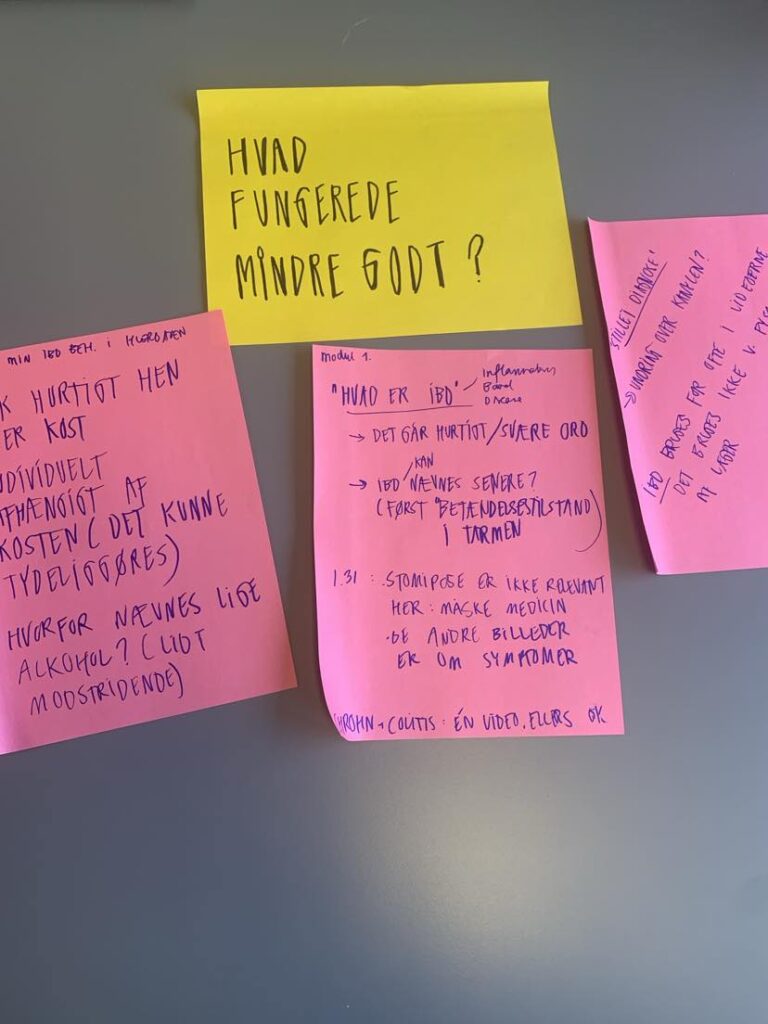 HVAD
FUNGEREDE
MINDRE GODT?
MIN IBD BEH. I HVERDAGEN
K HURTIGT HEN
ER KOST
NDIVIDUELT
AFHÆNGIGT AF
KOSTEN (DET KUNNE
TYDELIGGØRES)
HVORFOR NÆVNES LIGE
ALKOHOL? (LIDT
MODSTRIDENDE)
Modul 1.
"HVAD ER IBD"
Inflammatory
Bowel
Disease
→ DET GÅR HURTIGT/SVÆRE ORD
→ IBD KAN NÆVNES SENERE?
(FØRST "BETÆNDELSESTILSTAND
I TARMEN)
1.31: STOMIPOSE ER IKKE RELEVANT
HER: MÅSKE MEDICIN
• DE ANDRE BILLEDER
ER OM SYMPTOMER
CHROHN + COLITIS: ÉN VIDEO, ELLERS OK
STILLET DIAGNOSE'
→ UNDRING OVER KANALEN?
IBD BRUGES FOR OFTE I VIDEOERNE
DET BRUGES IKKE V.
AF LÆGER